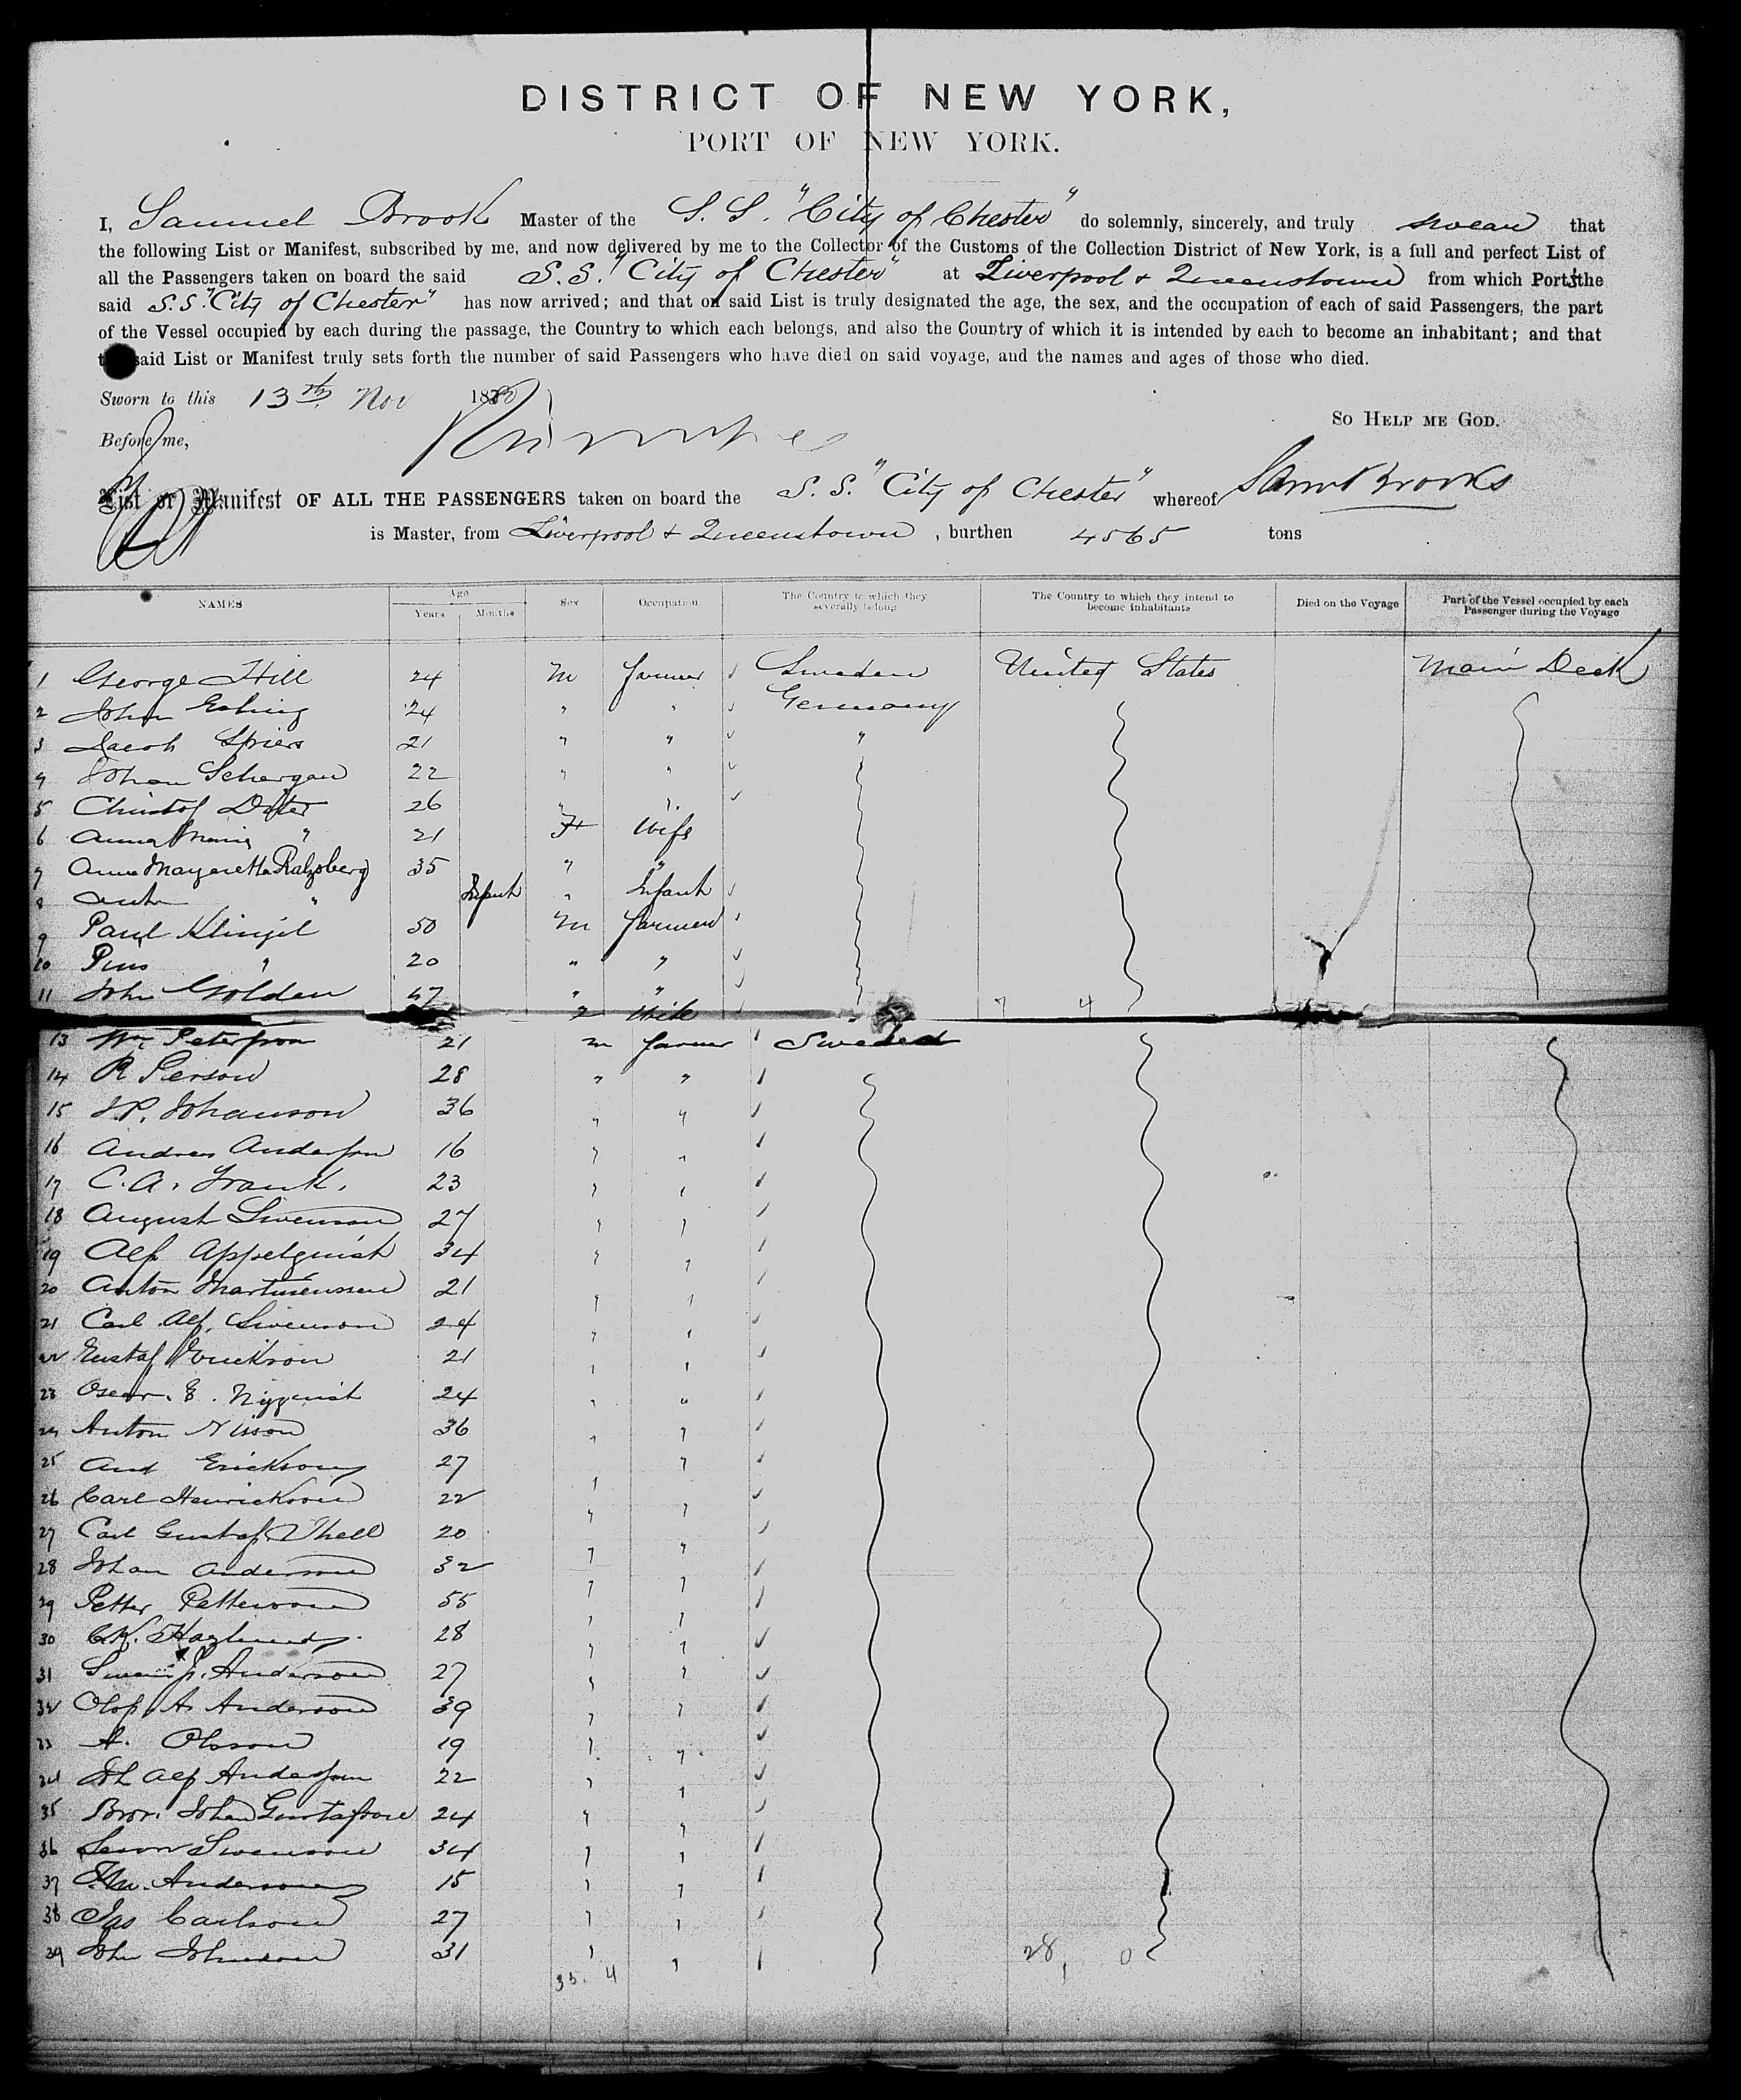 DISTRICT OF NEW YORK,
PORT OF NEW YORK.
I, Samuel Brook Master of the S. S. "City of Chester" do solemnly, sincerely, and truly swear that
the following List or Manifest, subscribed by me, and now delivered by me to the Collector of the Customs of the Collection District of New York, is a full and perfect List of
all the Passengers taken on board the said S. S. "City of Chester" at Liverpool + Queenstown from which Ports the
said S.S. "City of Chester" has now arrived; and that on said List is truly designated the age, the sex, and the occupation of each of said Passengers, the part
of the Vessel occupied by each during the passage, the Country to which each belongs, and also the Country of which it is intended by each to become an inhabitant; and that
said List or Manifest truly sets forth the number of said Passengers who have died on said voyage, and the names and ages of those who died.
Sworn to this 13th Nov 1880
So Help me God.
Before me,
List or Manifest OF ALL THE PASSENGERS taken on board the S. S. "City of Chester" whereof Saml Brooks
is Master, from Liverpool + Queenstown, burthen 4565 tons
NAMES Age Years Months Sex Occupation The Country to which they severally belong The Country to which they intend to become inhabitants Died on the Voyage Part of the Vessel occupied by each Passenger during the Voyage
1 George Hill 24 m farmer Sweden United States Main Deck
2 John 24 " " Germany
3 Jacob Spiers 21 " " "
4 Johan 22 " "
5 Christof 26 " "
6 Anna Maria " 21 F Wife
7 Anna Margaretta 35 " "
8 " Infant " Infant
9 Paul Klingil 50 m farmer
10 Pius " 20 " "
11 John Golden 47 " "
Wife 7 4
13 Wm Peterson 21 m farmer Sweden
14 P. Person 28 " "
15 J.P. Johanson 36 " "
16 Andreas Anderson 16 " "
17 C. A. Frank. 23 " "
18 August Swenson 27 " "
19 Alf Appelquist 34 " "
20 Anton Martinensen 21 " "
21 Carl Alf. Swenson 24 " "
22 Gustaf Erickson 21 " "
23 Oscar. E. Nyquist 24 " "
24 Anton Nisson 36 " "
25 And Erickson 27 " "
26 Carl Henrickson 22 " "
27 Carl Gustaf Thell 20 " "
28 Johan Anderson 32 " "
29 Petter Petterson 55 " "
30 C.K. Haglund 28 " "
31 Swen J. Anderson 27 " "
32 Olof A. Anderson 39 " "
33 A. Olsson 19 " "
34 Joh Alf Anderson 22 " "
35 Bror. Johan Gustafson 24 " "
36 Swenson 34 " "
37 Anderson 15 " "
38 Jas Carlson 27 " "
39 John Johnson 31 " " 28 0
35 4